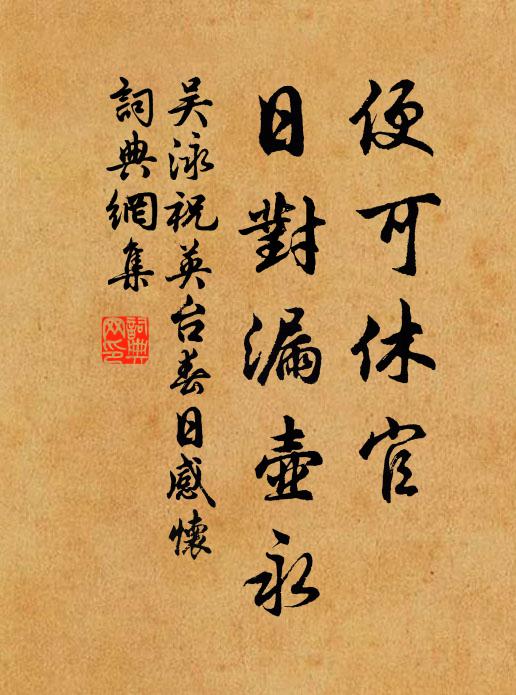 便可休官
日對漏壺永
吳泳祝英台春日感懷
詞典網集
詞典網印